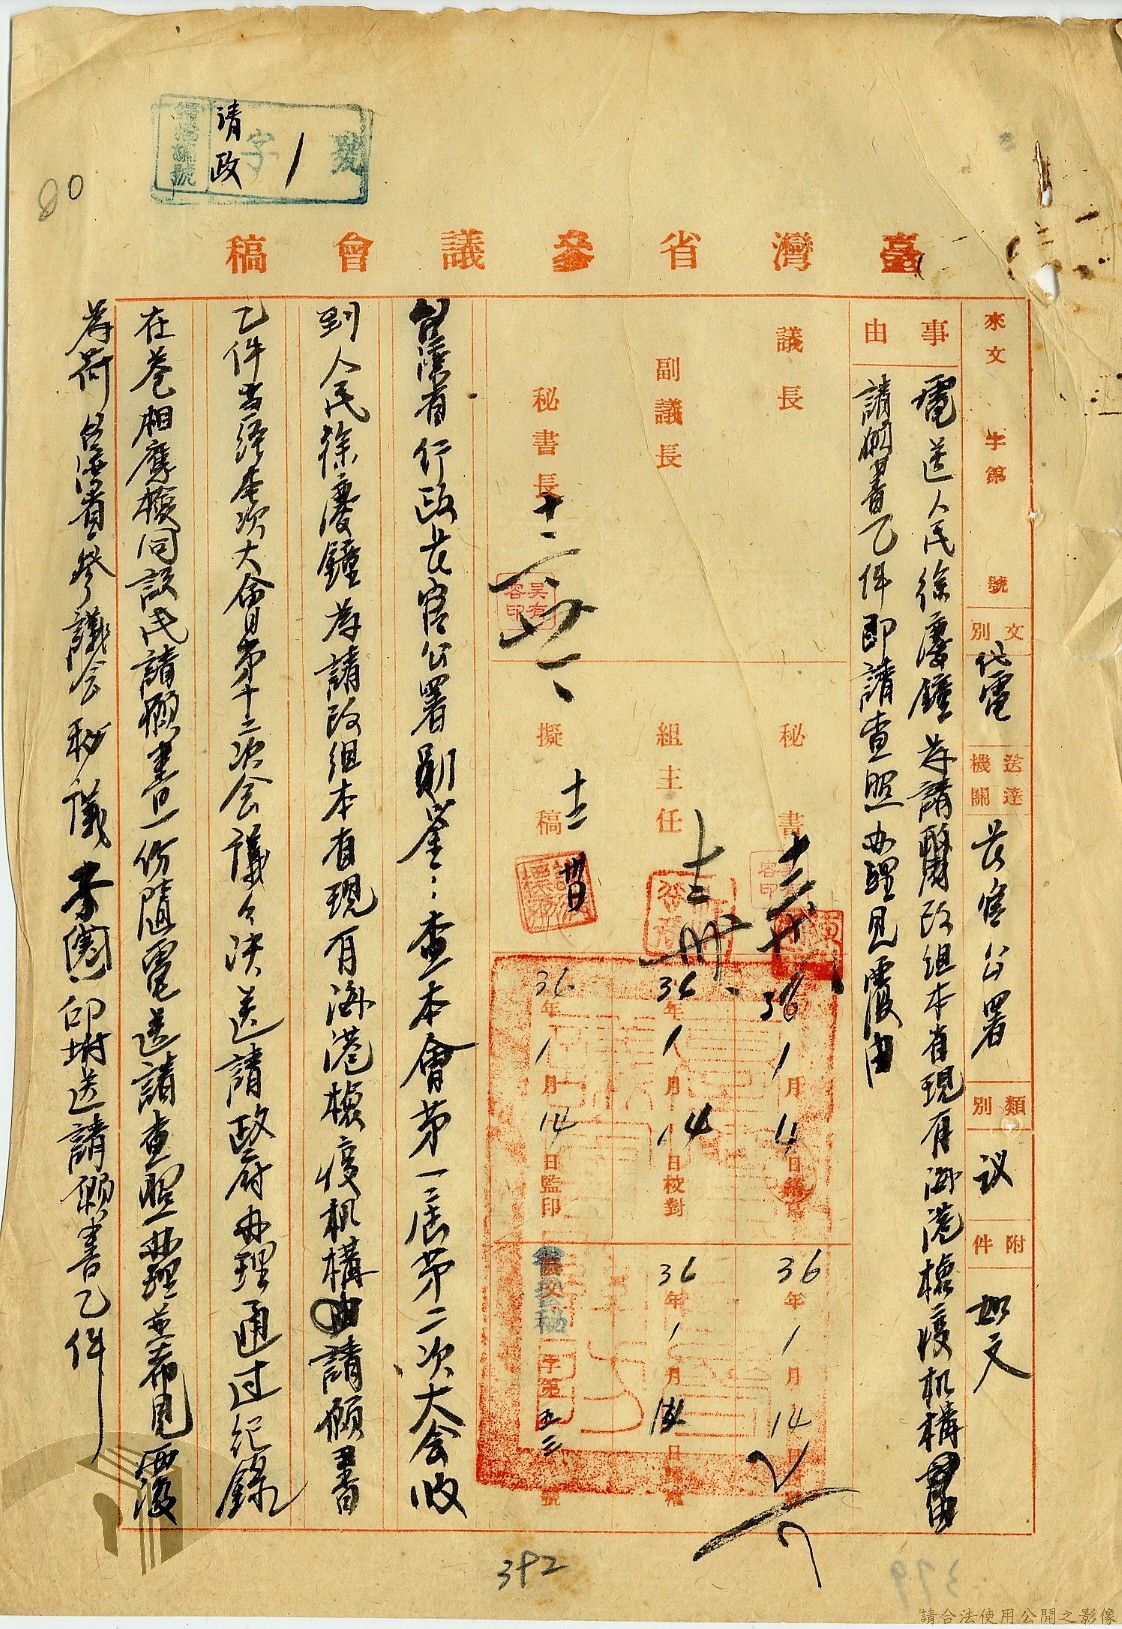 請政字1號
80
臺灣省參議會稿
來文 字第 號
文別 代電
送達機關 長官公署
類別 议
附件 如文
事由
電送人民徐慶鐘為請改組本省現有海港檢疫机構
請願書乙件即請查照办理見覆由
議長
副議長
秘書長
秘書
組主任
擬稿
吳有容印
36年1月日繕寫
36年1月14日校對
36年1月14日監印
36年1月14日
36年1月日
字第五三號
台湾省行政長官公署勛鑒：查本會第一屆第二次大会收
到人民徐慶鐘為請改組本省現有海港檢疫机構請願書
乙件当經本次大會第十三次会議々決送請政府办理通过纪錄
在卷相應檢同該民請願書一份隨電送請查照办理並希見覆
為荷台灣省參議会秘議子印附送請願書乙件
392
379
請合法使用公開之影像